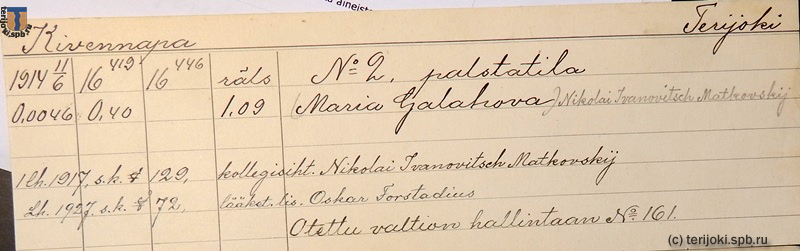 aineist
terijoki.spb.ru
Kivennapa Terijoki
1914 11/6 16 419 16 446 räls No 2, palstatila
0,0046 0,40 1.09 (Maria Galahova) Nikolai Ivanovitsch Matkovskij
1 lh. 1917, s.k. § 129, kollegisiht. Nikolai Ivanovitsch Matkovskij
Lh. 1927, s.k. § 72, lääket. lis. Oskar Forstadius
Otettu valtion hallintaan No 161.
(c) terijoki.spb.ru